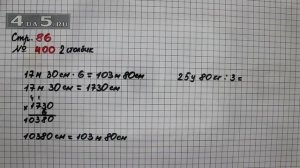 4DA5.RU
Стр. 86
№ 400 2 столбик
17 м 30 см · 6 = 103 м 80 см
17 м 30 см = 1730 см
× 1730
6
10380
10380 см = 103 м 80 см
25 ц 80 кг : 3 =